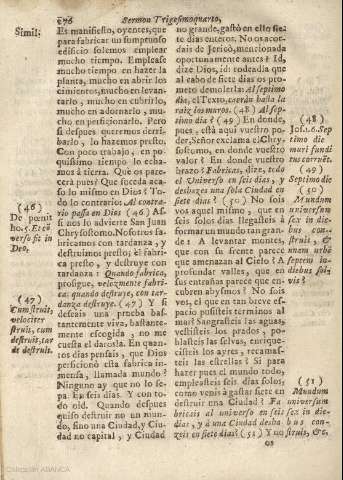 676 Sermon Trigesimoquarto,
Simil:
Es manifiesto, oyentes, que
para fabricar un sumptuoso
edificio solemos emplear
mucho tiempo. Emplease
mucho tiempo en hazer la
planta, mucho en abrir los
cimientos, mucho en levan-
tarlo, mucho en cubrirlo,
mucho en adornarlo, mu-
cho en perficionarlo. Pero
si despues queremos derri-
barlo, lo hazemos presto.
Con poco trabajo, en po-
quissimo tiempo lo echa-
mos à tierra. Què os pare-
cerà pues? Que suceda aca-
so lo mismo en Dios? To-
do lo contrario: Al contra-
rio passa en Dios (46) As-
si nos lo advierte San Juan
Chrysostomo. Nosotros fa-
bricamos con tardanza, y
destruimos presto; èl fabri-
ca presto, y destruye con
tardanza: Quando fabrica,
prosigue, velozmente fabri-
ca: quando destruye, con tar-
danza destruye. (47) Y si
deseais una prueba bas-
tantemente viva, bastante-
mente escogida, no me
cuesta el darosla. En quan-
tos dias pensais, que Dios
perficionò esta fabrica in-
mensa, llamada mundo?
Ninguno ay que no lo se-
pa. En seis dias. Y con to-
do esto. Quando despues
quiso destruir no un mun-
do, sino una Ciudad, y Ciu-
dad no capital, y Ciudad
(46)
De pœnit
ho. 5. Et cõ
verso fit in
Deo,
(47)
Cum struit,
velociter
struit, cum
destruit, tar
de destruit.
no grande, gastò en ello sie-
te dias enteros. No os acor-
dais de Jericò, mencionada
oportunamente antes? Id,
dize Dios, id: rodeadla que
al cabo de siete dias os pro-
meto demolerla: Al septimo
dia, el Texto, caeràn hasta la
raiz los muros. (48) Al sep-
timo dia? (49) En donde,
pues, està aqui vuestro po-
der, Señor exclama el Chry-
sostomo, en donde vuestro
valor? En donde vuestro
brazo? Fabricas, dize, todo
el Universo en seis dias, y
desbazes una sola Ciudad en
siete dias? (50) No sois
vos aquel mismo, que en
seis solos dias llegasteis à
formar un mundo tan gran-
de? A levantar montes,
que con su frente parece
que amenazan al Cielo? A
profundar valles, que en
sus entrañas parece que en-
cubren abysmos? No sois
vos, el que en tan breve es-
pacio pusisteis terminos al
mar? Sangrasteis las aguas,
vestisteis los prados, po-
blasteis las selvas, enrique-
cisteis los ayres, recamas-
teis las estrellas? Si para
hazer pues el mundo todo,
empleasteis seis dias solos,
como venis à gastar siete en
destruir una Ciudad? Fa-
bricais al universo en seis
dias, y à una Ciudad desha-
zeis en siete dias? (51) Y no
os
(48)
Jos. 1. 6. Sep
timo die
muri fundi
tus corruẽt.
(49)
Septimo die
(50)
Mundum
universum
sex in die-
bus cons-
truis, &
unam urbẽ
septem in
diebus sol-
vis?
(51)
Mundum
universum
sex in die-
bus cons-
truis, &c.
Colección ABANCA